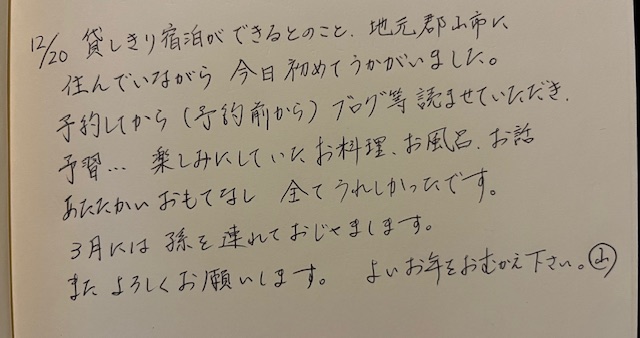 12/20 貸しきり宿泊ができるとのこと、地元郡山市に
住んでいながら 今日初めてうかがいました。
予約してから(予約前から)ブログ等読ませていただき、
予習… 楽しみにしていたお料理、お風呂、お話
あたたかいおもてなし 全てうれしかったです。
3月には孫を連れておじゃまします。
またよろしくお願いします。 よいお年をおむかえ下さい。㊤